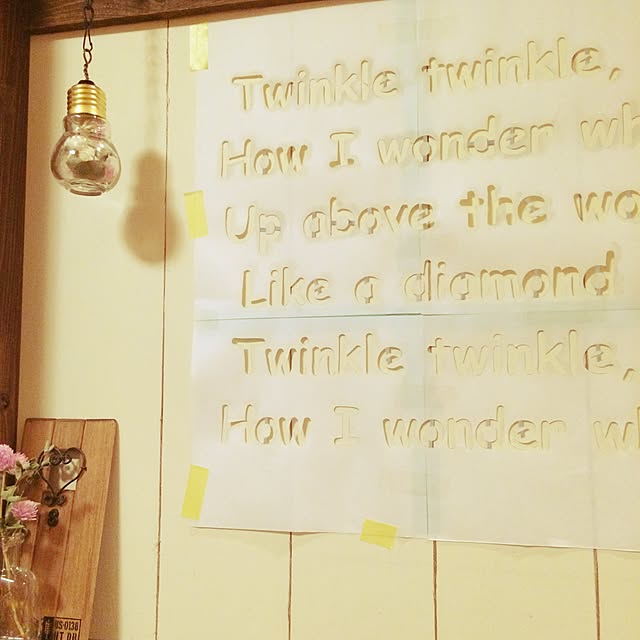 Twinkle twinkle,
How I wonder wh
Up above the wo
Like a diamond
Twinkle twinkle,
How I wonder wh